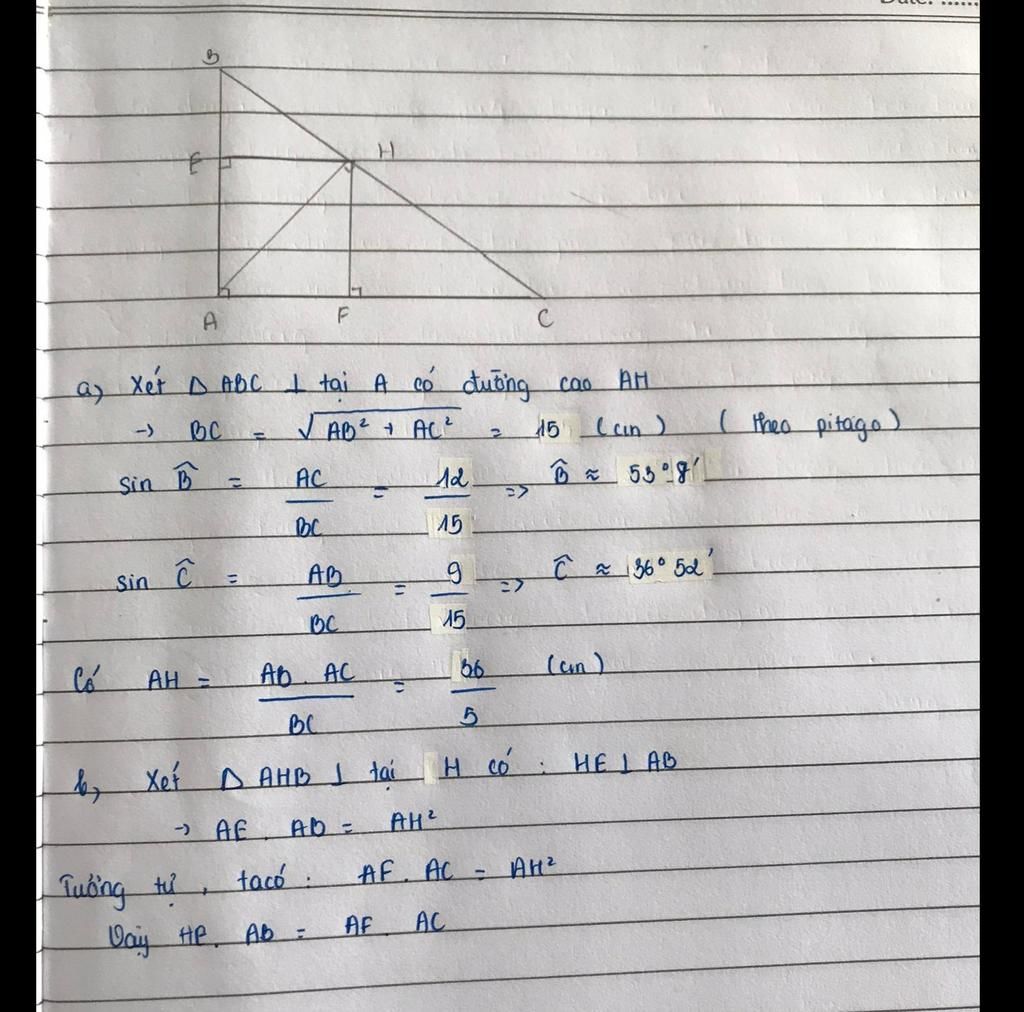 Date: ......
B
E H
A F C
a, Xét Δ ABC ⊥ tại A có đường cao AH
→ BC = √AB² + AC² = 15 (cm) (theo pitago)
sin B̂ = AC/BC = 12/15 => B̂ ≈ 53°8'
sin Ĉ = AB/BC = 9/15 => Ĉ ≈ 36°52'
Có AH = AB . AC/BC = 36/5 (cm)
b, Xét Δ AHB ⊥ tại H có : HE ⊥ AB
→ AE . AB = AH²
Tương tự , ta có : AF . AC = AH²
Vậy . AB = AF . AC